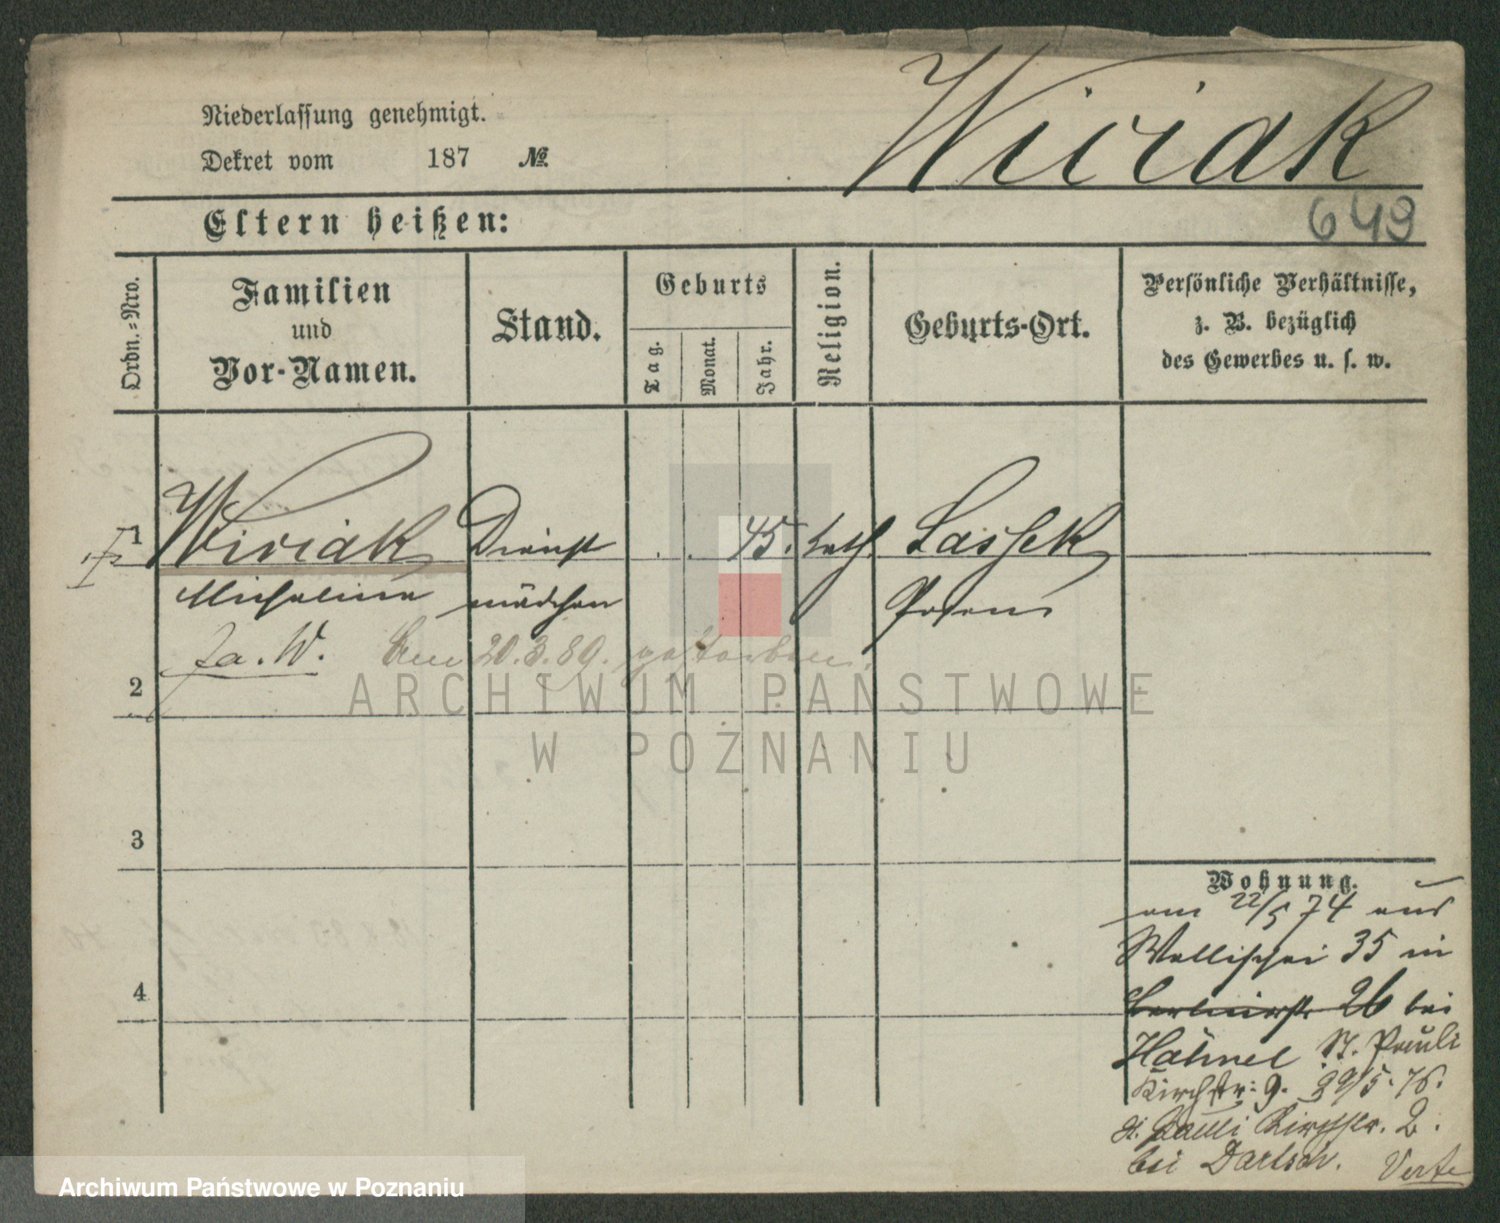 Wiciak
Niederlassung genehmigt.
Dekret vom 187 №
649
Eltern heißen:
Ordn.=Nro.
Familien
und
Vor-Namen.
Stand.
Geburts
Tag.
Monat.
Jahr.
Religion.
Geburts-Ort.
Persönliche Verhältnisse,
z. B. bezüglich
des Gewerbes u. s. w.
1 Wiciak Dienst . . 45. kath. Lassek
Michalina mädchen Posen
fa. W. Am 20.3.89. gestorben.
2
3
4
Wohnung.
am 22/5 74 aus
Wallischei 35 in
Berlinerstr 26 bei
Hähnel St. Pauli
Kirchstr: 9. 29/5. 76.
St. Pauli Kirchstr. 2.
bei Verte
ARCHIWUM PAŃSTWOWE
W POZNANIU
Archiwum Państwowe w Poznaniu